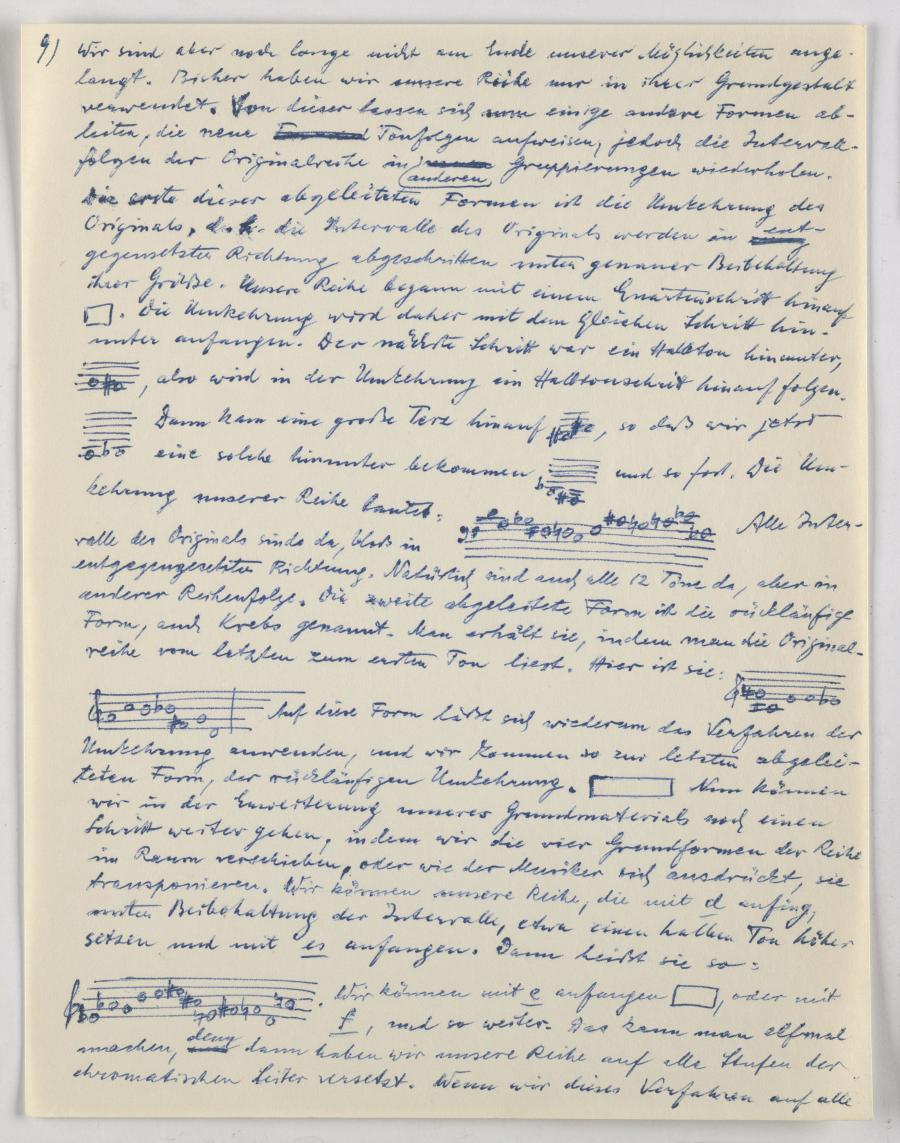 9) Wir sind aber noch lange nicht am Ende unserer Möglichkeiten ange-
langt. Bisher haben wir unsere Reihe nur in ihrer Grundgestalt
verwendet. Von dieser lassen sich nun einige andere Formen ab-
leiten, die neue Tonfolgen aufweisen, jedoch die Intervall-
folgen der Originalreihe in anderen Gruppierungen wiederholen.
Die erste dieser abgeleiteten Formen ist die Umkehrung des
Originals, d.h. die Intervalle des Originals werden in ent-
gegengesetzter Richtung abgeschritten unter genauer Beibehaltung
ihrer Größe. Unsere Reihe begann mit einem Quartenschritt hinauf
. Die Umkehrung wird daher mit dem gleichen Schritt hin-
unter anfangen. Der nächste Schritt war ein Halbton hinunter,
, also wird in der Umkehrung ein Halbtonschritt hinauf folgen.
Dann kam eine große Terz hinauf , so daß wir jetzt
eine solche hinunter bekommen, und so fort. Die Um-
kehrung unserer Reihe lautet:
Alle Inter-
valle des Originals sind da, bloß in
entgegengesetzter Richtung. Natürlich sind auch alle 12 Töne da, aber in
anderer Reihenfolge. Die zweite abgeleitete Form ist die rückläufige
Form, auch Krebs genannt. Man erhält sie, indem man die Original-
reihe vom letzten zum ersten Ton liest. Hier ist sie:
Auf diese Form läßt sich wiederum das Verfahren der
Umkehrung anwenden, und wir kommen so zur letzten abgelei-
teten Form, der rückläufigen Umkehrung. Nun können
wir in der Erweiterung unseres Grundmaterials noch einen
Schritt weiter gehen, indem wir die vier Grundformen der Reihe
im Raum verschieben, oder wie der Musiker sich ausdrückt, sie
transponieren. Wir können unsere Reihe, die mit d anfing,
unter Beibehaltung der Intervalle, etwa einen halben Ton höher
setzen und mit es anfangen. Dann heißt sie so:
. Wir können mit e anfangen , oder mit
f, und so weiter. Das kann man elfmal
machen, denn dann haben wir unsere Reihe auf alle Stufen der
chromatischen Leiter versetzt. Wenn wir dieses Verfahren auf alle